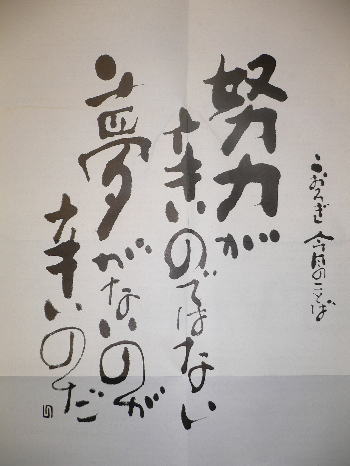 こおろぎ 今月のことば
努力が
辛いのではない
夢がないのが
辛いのだ